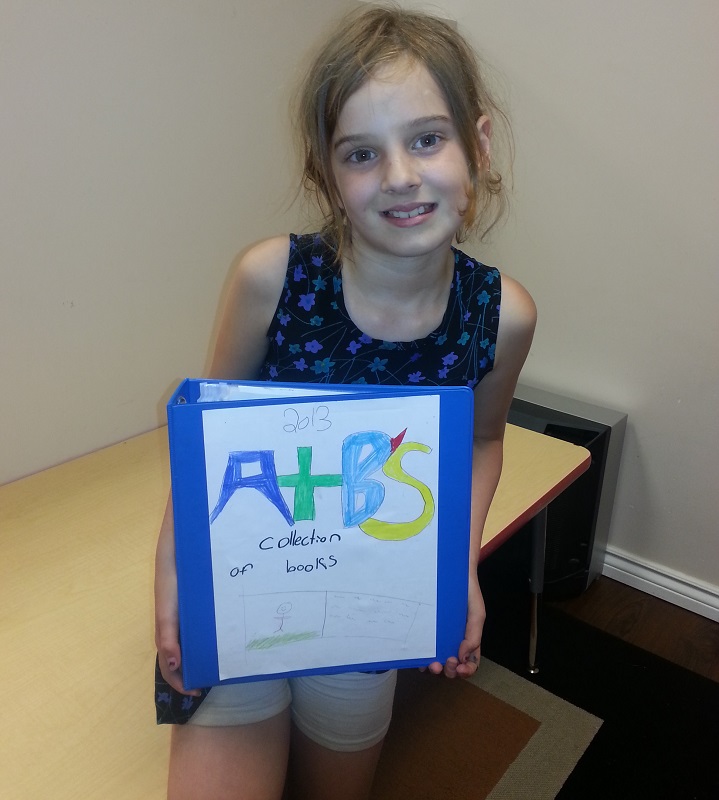 2013
A+B's
Collection
of books